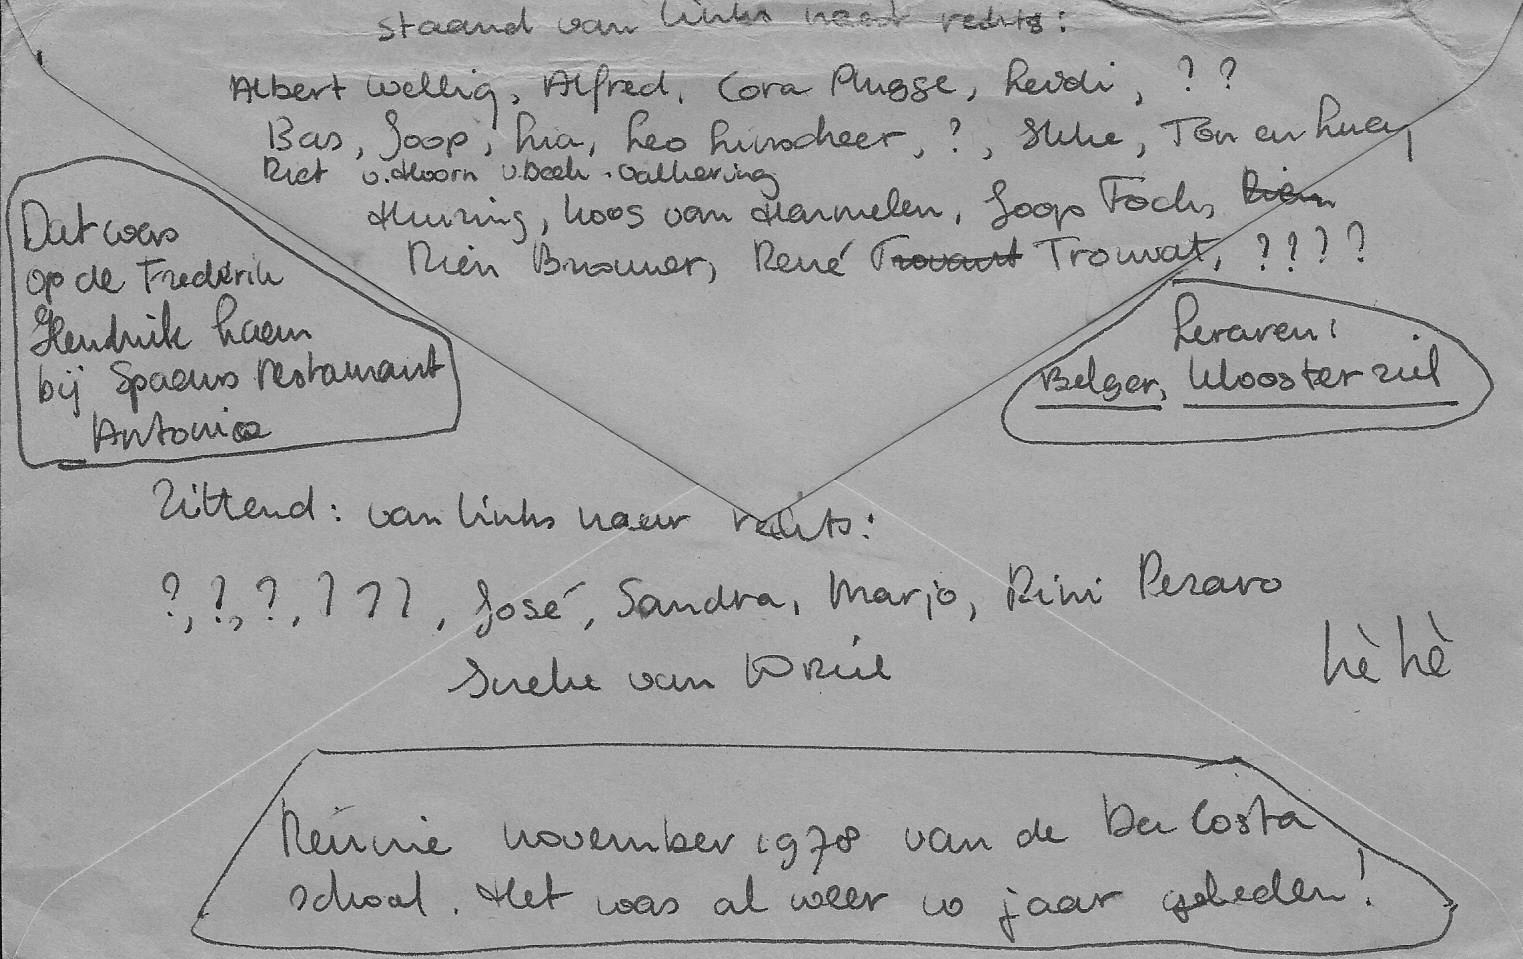 staand van links naar rechts:
Albert Wellig, Alfred, Cora Plugge, Heidi, ? ?
Bas, Joop, Lia, Leo Linscheer, ?, Ilke, Ton en Lucy
Riet v. Hoorn v. Beek
Huizing, Koos van Harmelen, Joop Foch, Rien
Rien Brouwer, René Trouvat Trouvat, ????
Dat was
op de Frederik
Hendrik laan
bij Spaans restaurant
Antonio
Leraren:
Belger, Kloosterziel
Zittend: van links naar rechts:
?, ?, ?, ? ? ?, José, Sandra, Marjo, Rini Pezaro
Ineke van Driel
hè hè
Reünie november 1978 van de Da Costa
school. Het was al weer 10 jaar geleden!